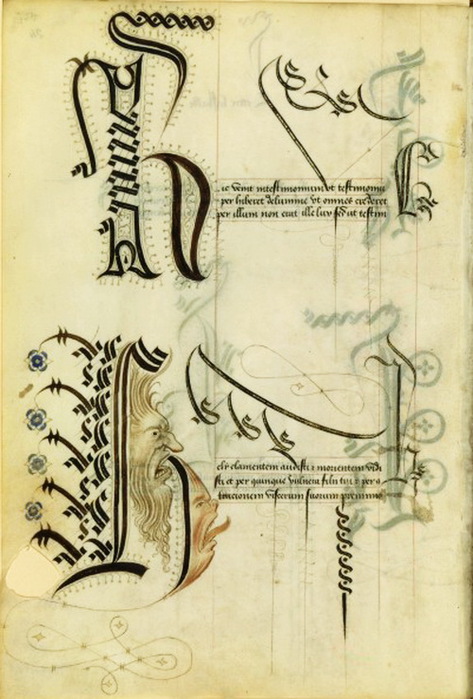 ic venit intestimonium vt testimoniu
per hiberet delumine vt omnes crederet
per illum non erat ille lux sed ut testim
clamentem audisti z morientem vidi
sti et per quinque vulnera filii tui z per
viscerum suorum